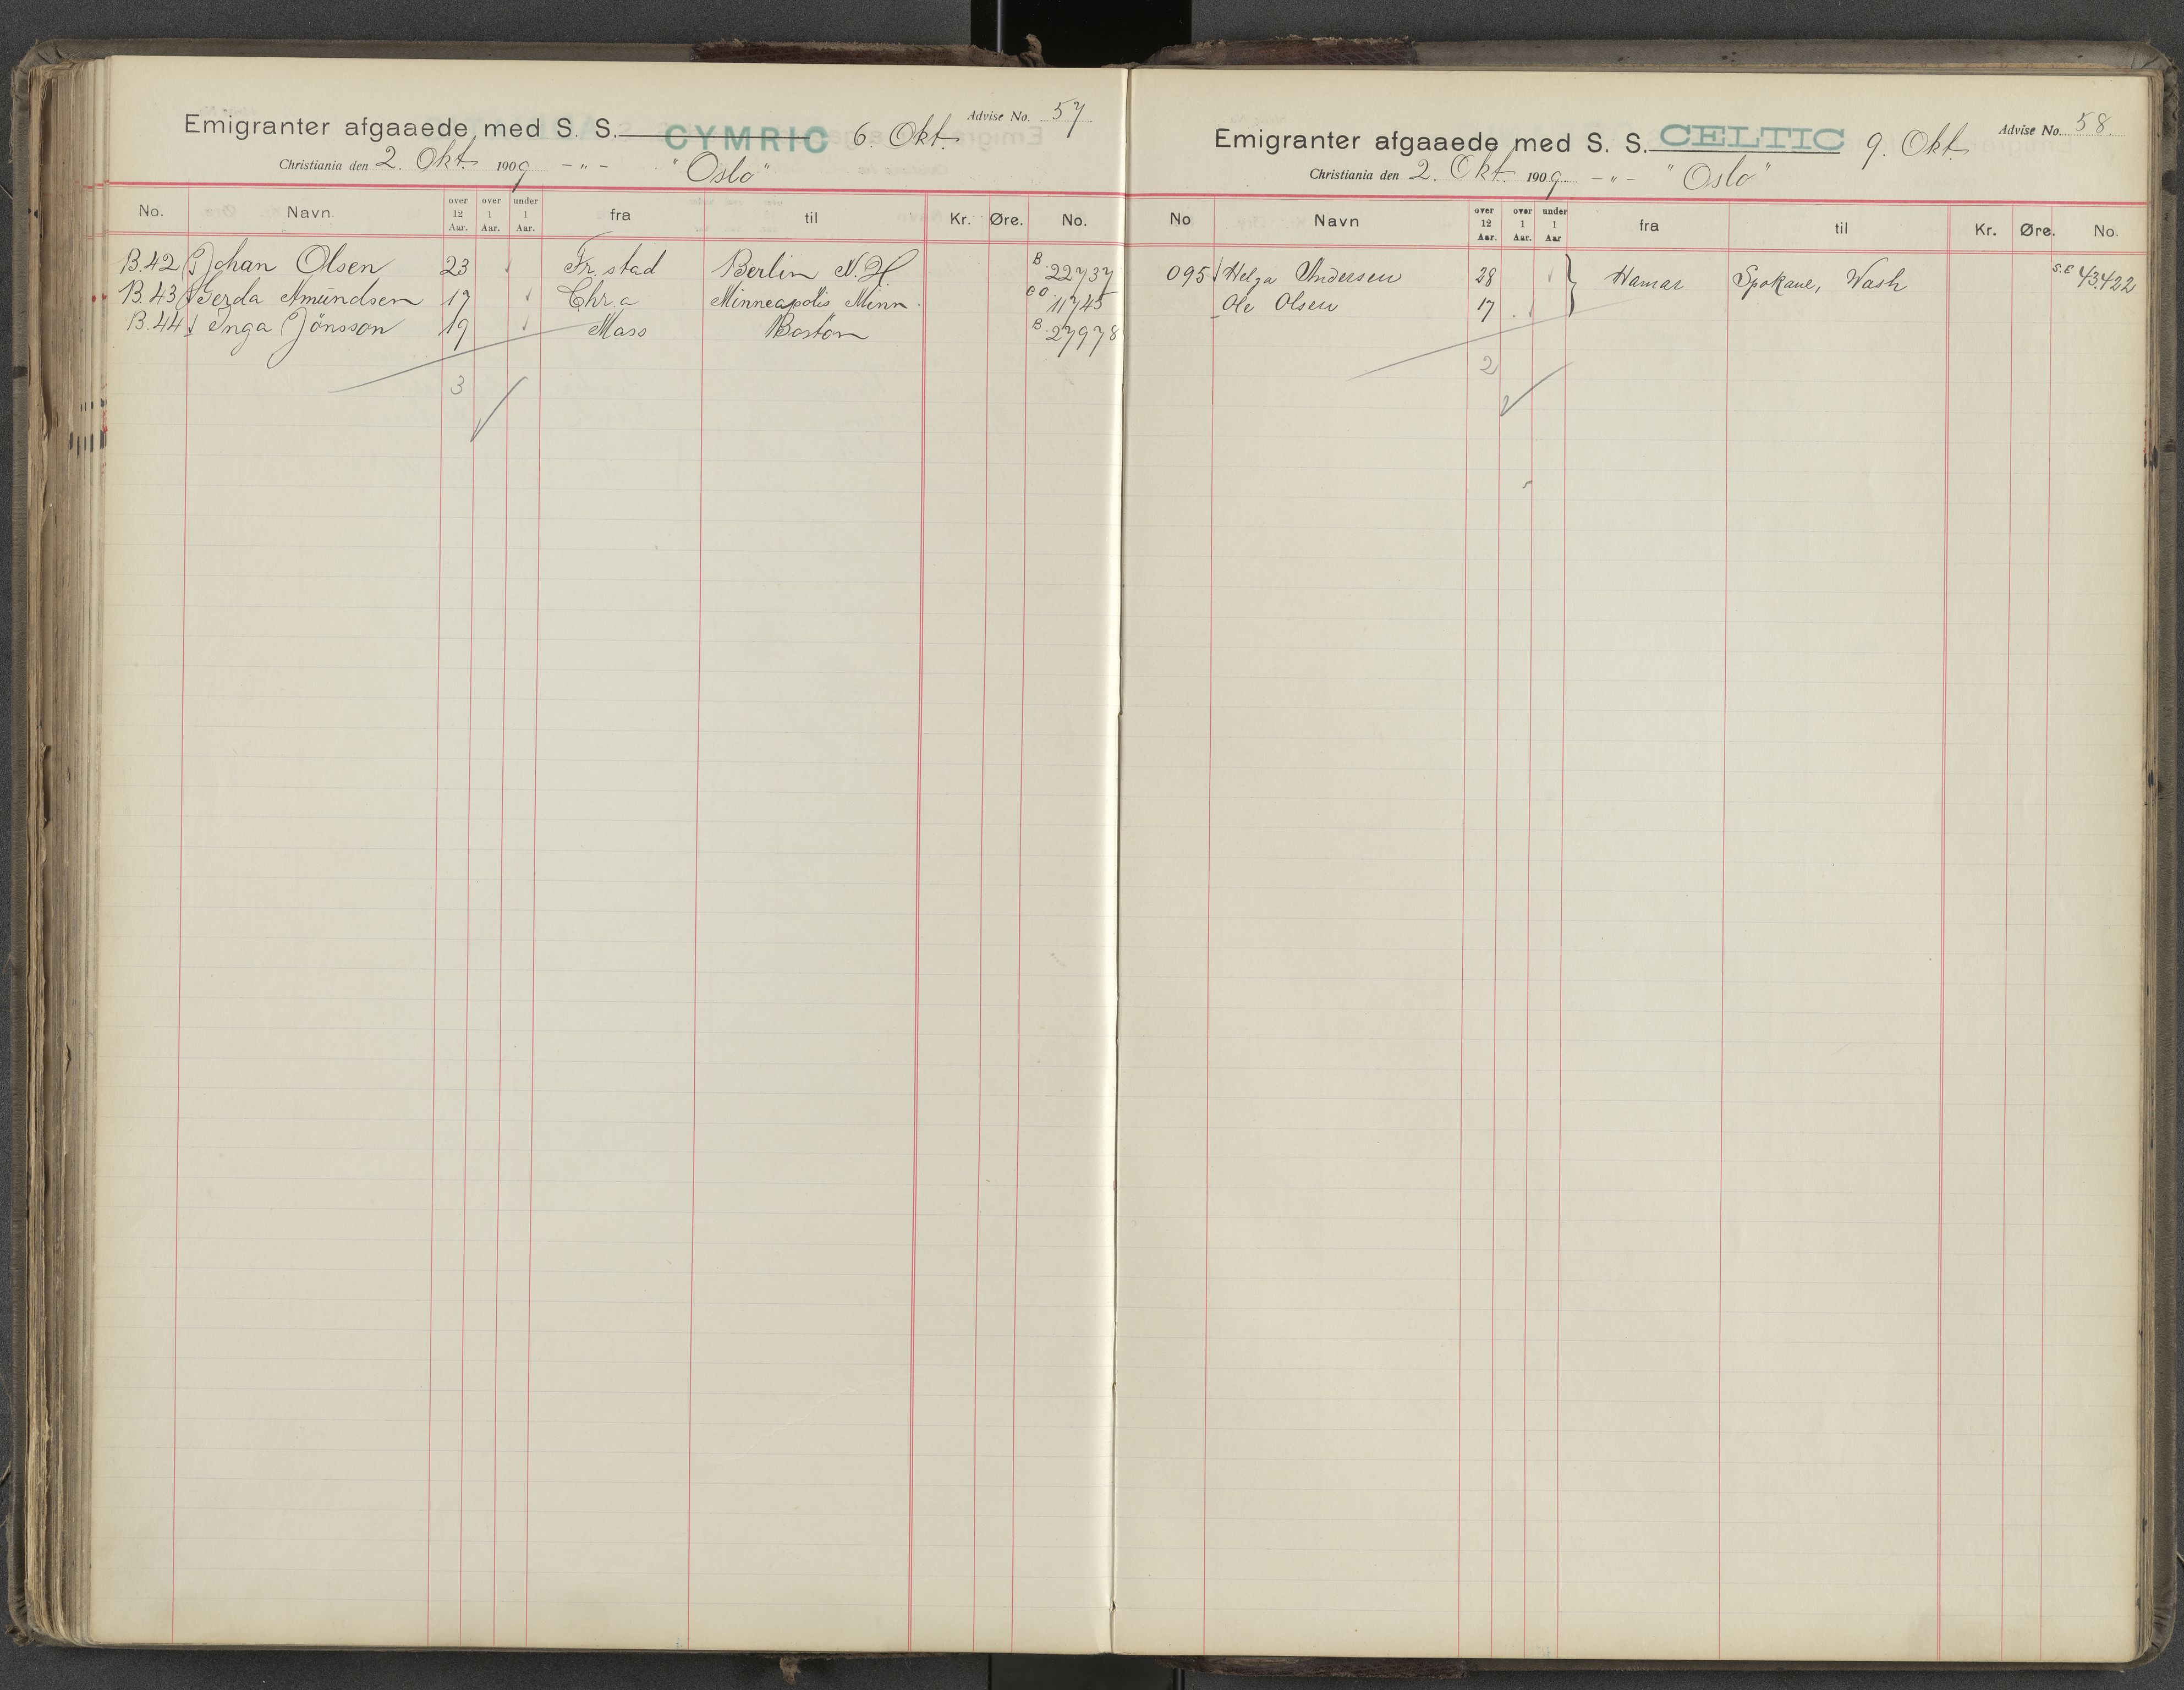 Advise No. 57
Emigranter afgaaede med S. S. CYMRIC 6. Okt.
Christiania den 2. Okt. 1909 - „ - "Oslo"
No. Navn. over 12 Aar. over 1 Aar. under 1 Aar. fra til Kr. Øre. No.
B.42 Johan Olsen 23 Fr.stad Berlin N.H B. 22737
B.43 Gerda Amundsen 17 Chr.a Minneapolis Minn. 11745
B.44 Inga Jönsson 19 Mass Boston B. 27978
3
Advise No. 58
Emigranter afgaaede med S. S. CELTIC 9. Okt.
Christiania den 2. Okt. 1909 - „ - "Oslo"
No Navn over 12 Aar. over 1 Aar. under 1 Aar fra til Kr. Øre. No.
095 Helga Andersen 28 } Hamar Spokane, Wash S.E 43422
Ole Olsen 17
2